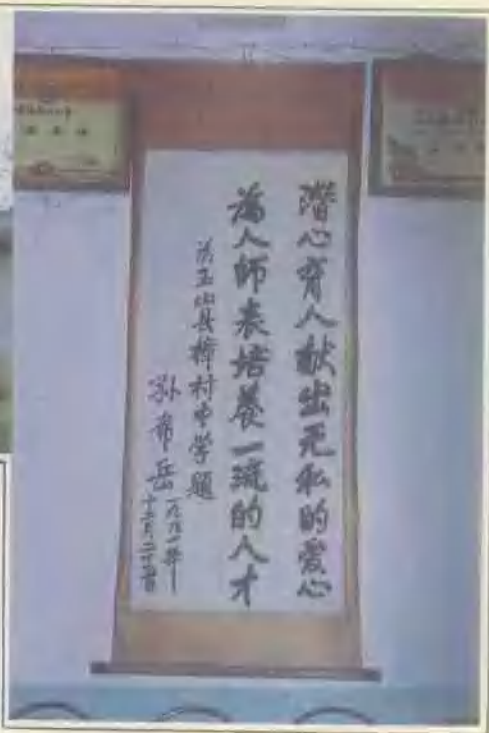 潜心育人献出无私的爱心
为人師表培養一流的人才
为玉山县樟村中学題
孙希岳
一九九一年
十二月二十日